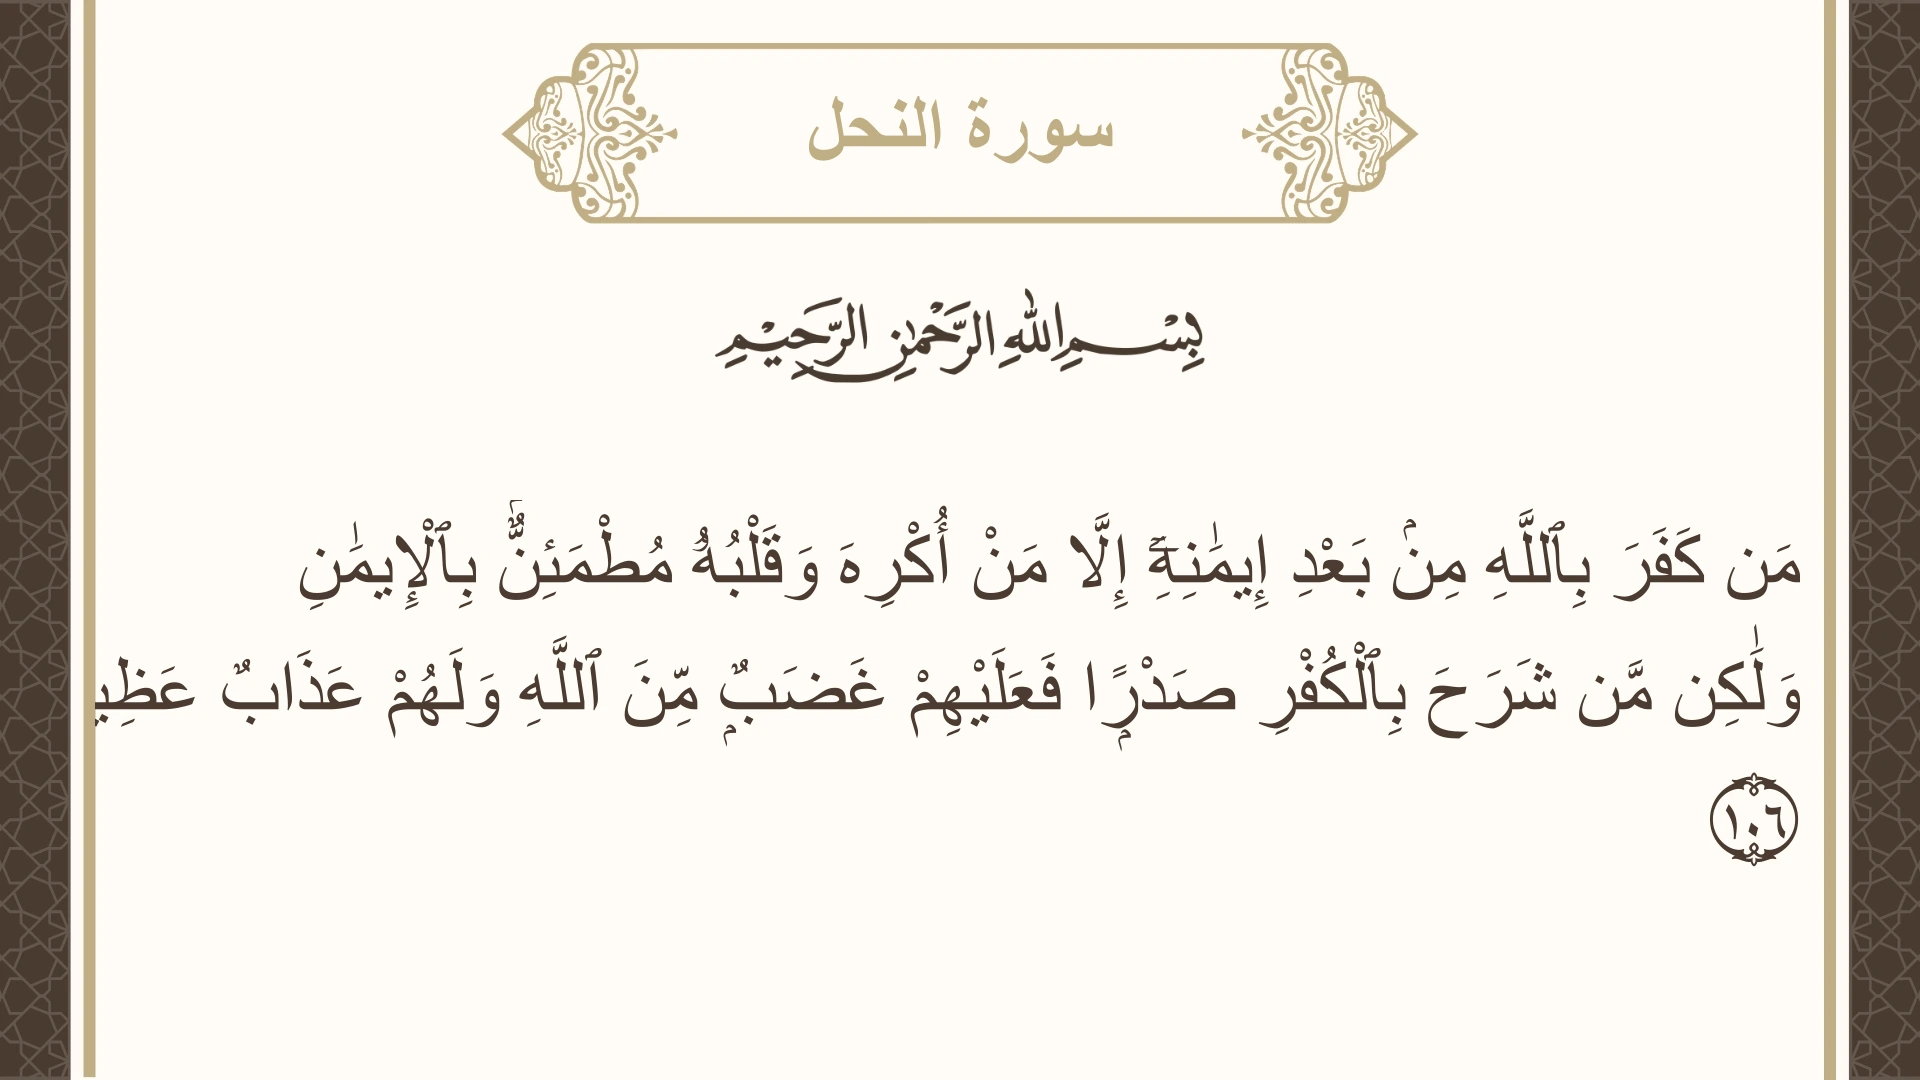 سورة النحل
بِسْمِ اللهِ الرَّحْمٰنِ الرَّحِيْمِ
مَن كَفَرَ بِٱللَّهِ مِنۢ بَعْدِ إِيمَٰنِهِۦٓ إِلَّا مَنْ أُكْرِهَ وَقَلْبُهُۥ مُطْمَئِنٌّۢ بِٱلْإِيمَٰنِ
وَلَٰكِن مَّن شَرَحَ بِٱلْكُفْرِ صَدْرًۭا فَعَلَيْهِمْ غَضَبٌۭ مِّنَ ٱللَّهِ وَلَهُمْ عَذَابٌ
١٠٦